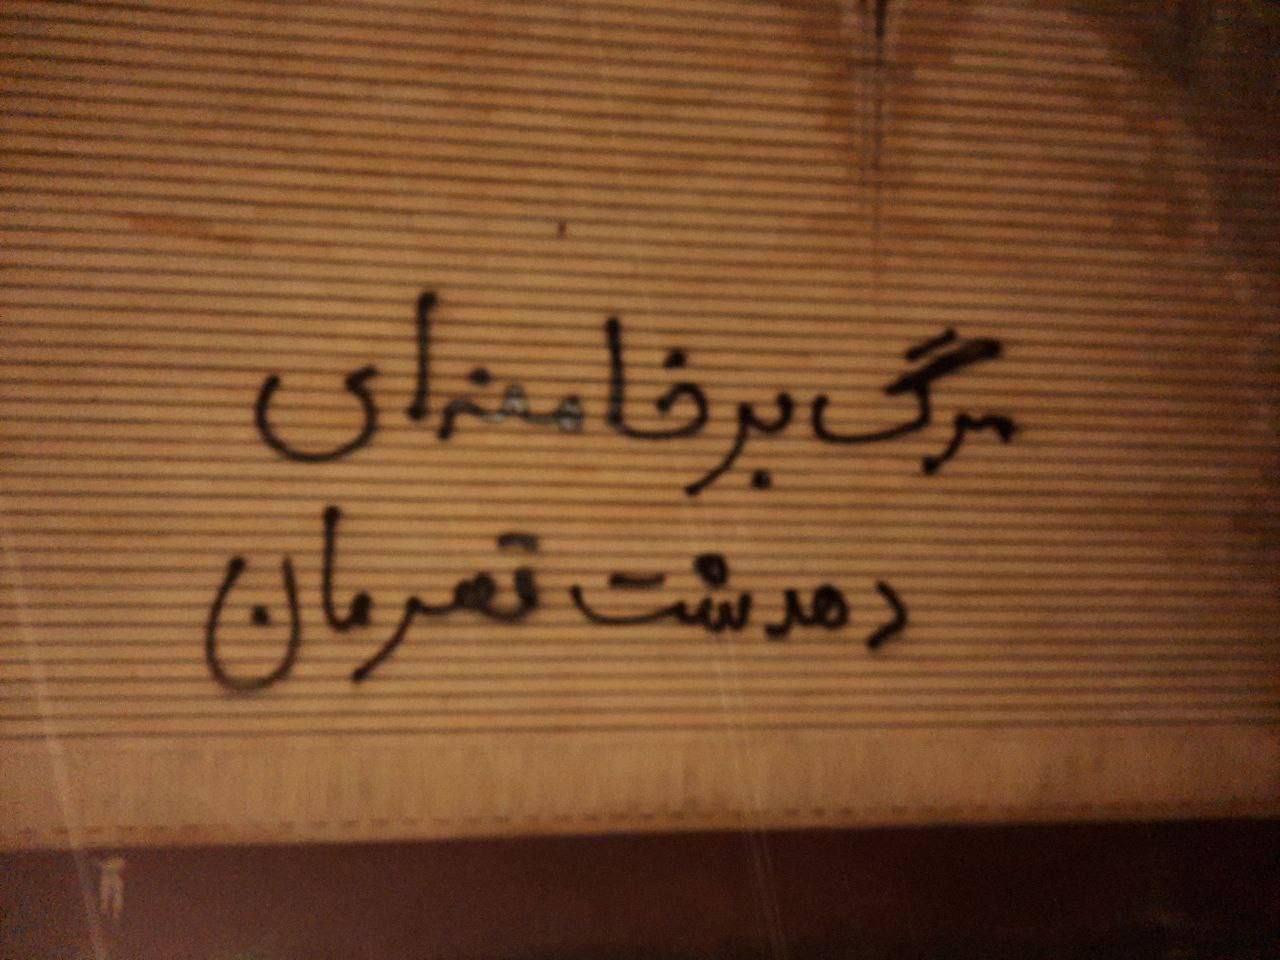 مرگ بر خامنه‌ای
دهدشت قهرمان